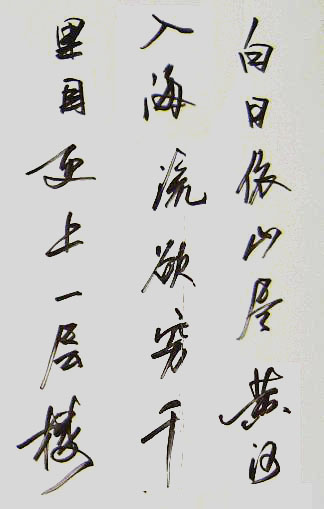 白日依山尽黄河
入海流欲穷千
里目更上一层楼